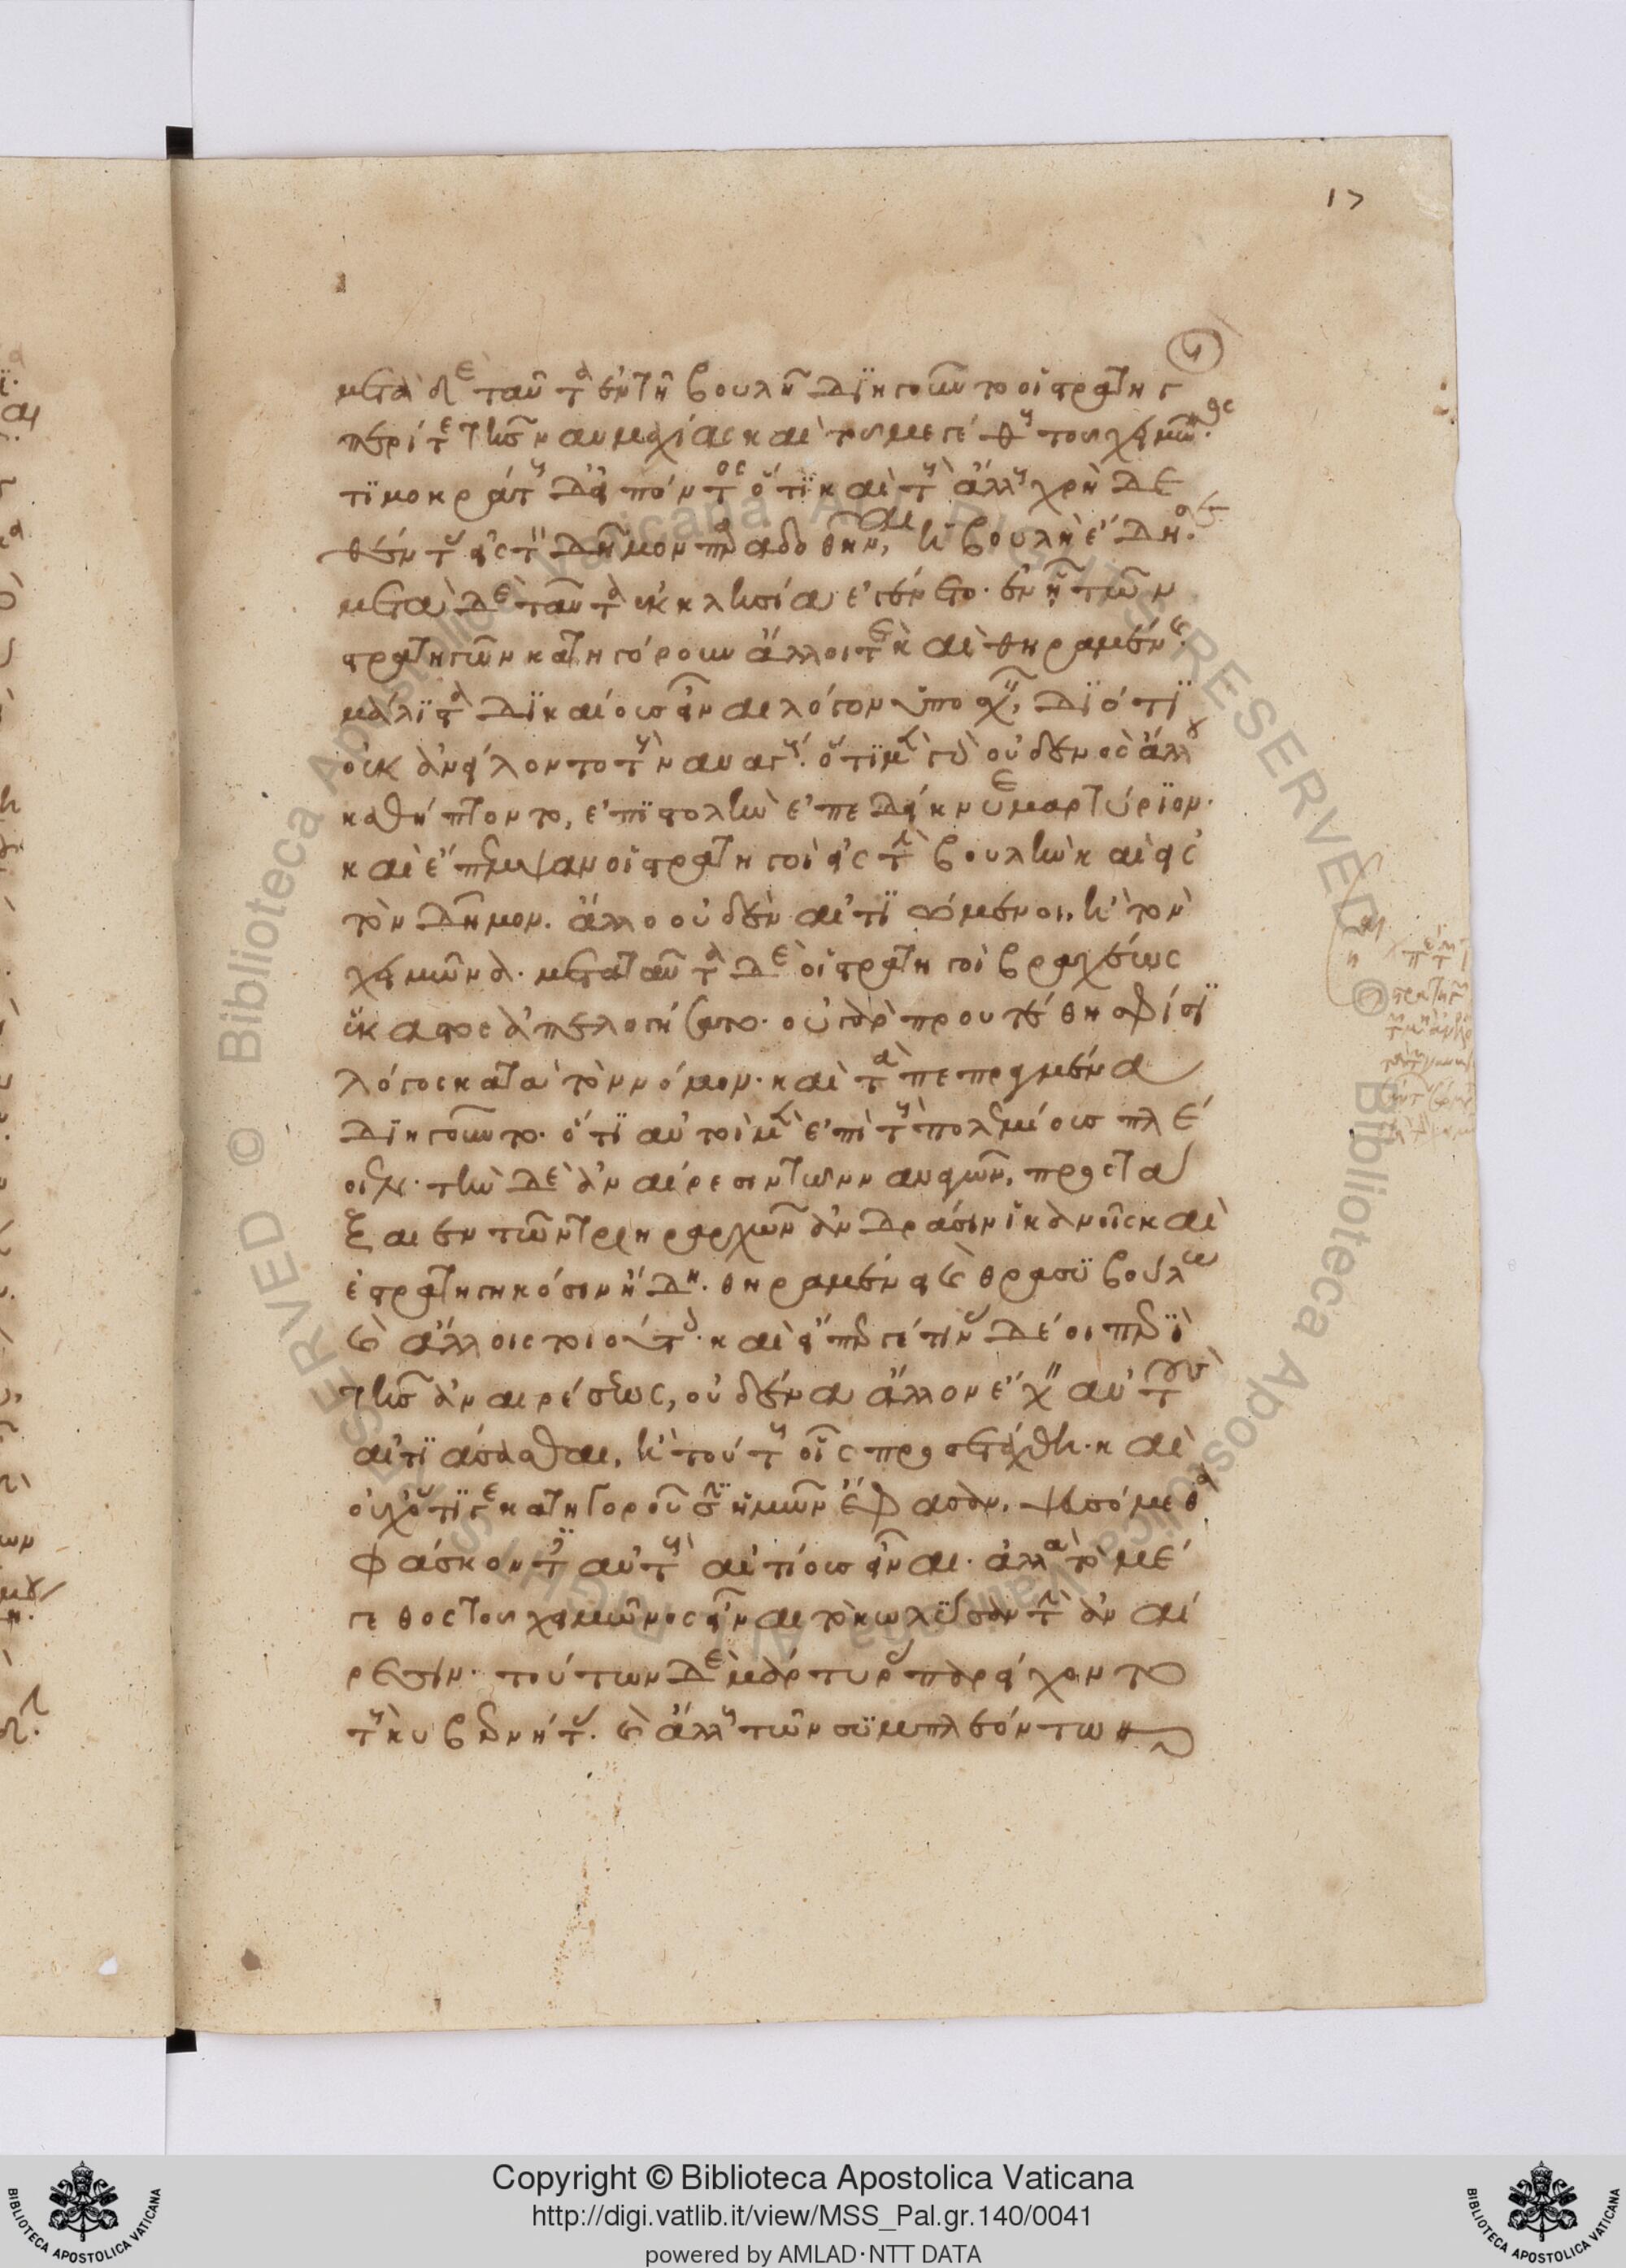 17
μετὰ δὲ ταῦτα ἐν τῇ βουλῇ διηγοῦντο οἱ στρατηγοὶ
περί τε τῆς ναυμαχίας καὶ τοῦ μεγέθους τοῦ χειμῶνος.
τιμοκράτους δ' εἰπόντος ὅτι καὶ τοὺς ἄλλους χρὴ δε
θέντας εἰς τὸν δῆμον παραδοθῆναι, ἡ βουλὴ ἔδησε.
μετὰ δὲ ταῦτα ἐκκλησία ἐγένετο. ἐν ᾗ τῶν
στρατηγῶν κατηγόρουν ἄλλοι τε καὶ θηραμένης
μάλιστα δικαίους εἶναι λόγον ὑποσχεῖν, διότι
οὐκ ἀνείλοντο τοὺς ναυαγούς. ὅτι μὲν γὰρ οὐδενὸς ἄλλου
καθήπτοντο, ἐπιστολὴν ἐπεδείκνυε μαρτύριον.
καὶ ἔπεμψαν οἱ στρατηγοὶ εἰς τὴν βουλὴν καὶ εἰς
τὸν δῆμον. ἄλλο οὐδὲν αἰτιώμενοι, ἢ τὸν
χειμῶνα. μετὰ ταῦτα δὲ οἱ στρατηγοὶ βραχέως
ἕκαστος ἀπελογήσατο. οὐ γὰρ προυτέθη σφίσι
λόγος κατὰ τὸν νόμον. καὶ τὰ πεπραγμένα
διηγοῦντο. ὅτι αὐτοὶ μὲν ἐπὶ τοὺς πολεμίους πλέ
οιεν. τὴν δὲ ἀναίρεσιν τῶν ναυαγῶν, προστά
ξαιεν τῶν τριηράρχων ἀνδράσιν ἱκανοῖς καὶ
ἐστρατηγηκόσιν ἤδη. θηραμένει καὶ θρασυβούλῳ
καὶ ἄλλοις τοιούτοις. καὶ εἴπερ γέ τινας δέοι περὶ
τῆς ἀναιρέσεως, οὐδένα ἄλλον ἔχειν αὐτοὺς
αἰτιάσασθαι, ἢ τούτους οἷς προσετάχθη. καὶ
οὐχ ὅτι γε κατηγοροῦσιν ἡμῶν ἔφασαν, ψευσόμεθα
φάσκοντες αὐτοὺς αἰτίους εἶναι. ἀλλὰ τὸ μέ
γεθος τοῦ χειμῶνος εἶναι τὸ κωλῦσαν τὴν ἀναί
ρεσιν. τούτων δὲ μάρτυρας παρείχοντο
τοὺς κυβερνήτας. καὶ ἄλλους τῶν συμπλεόντων
Copyright © Biblioteca Apostolica Vaticana
http://digi.vatlib.it/view/MSS_Pal.gr.140/0041
powered by AMLAD·NTT DATA